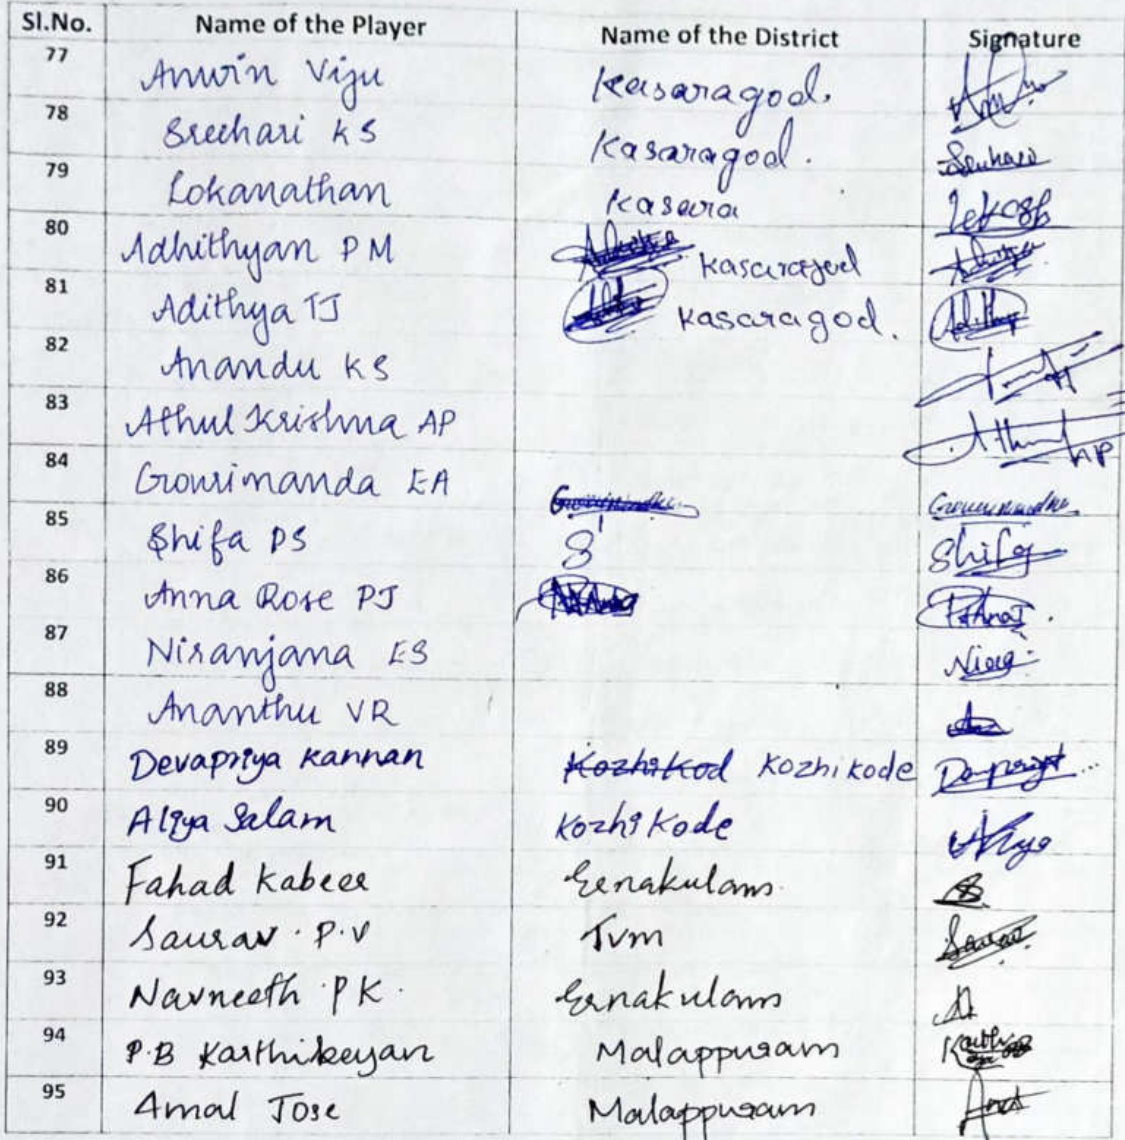 Sl.No. Name of the Player Name of the District Signature
77 Anwin Viju Kasaragod.
78 Sreehari K S Kasaragod.
79 Lokanathan Kasara
80 Adhithyan P M Kasaragod
81 Adithya TJ Kasaragod.
82 Anandu K S
83 Athul Krishna AP Athul AP
84 Gowrinanda EA
85 Shifa PS S Shifa
86 Anna Rose PJ
87 Niranjana ES
88 Ananthu VR
89 Devapriya Kannan Kozhikod Kozhikode
90 Aliya Salam Kozhikode Aliya
91 Fahad Kabeer Eernakulam.
92 Saurav. P.V Tvm Saurav
93 Navneeth P K. Ernakulam
94 P.B Karthikeyan Malappuram
95 Amal Jose Malappuram